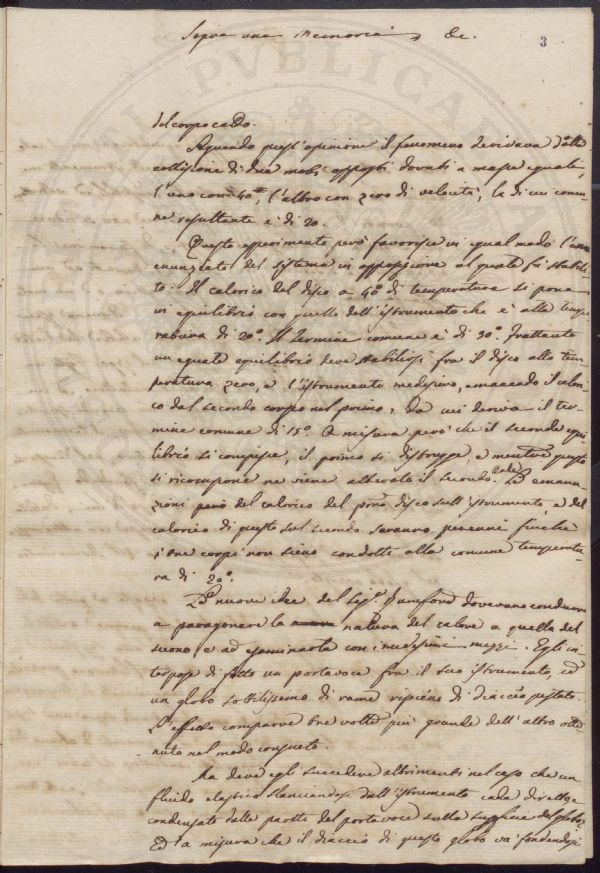 Sopra una Memoria &c.
3
del corpo caldo.
Seguendo quest'opinione il fenomeno derivava dalla
collisione di due mobili opposti dovuti a masse eguali,
l'uno con 40, l'altro con zero di velocità, la di cui comu-
ne resultante è di 20.
Questo esperimento però favorisce in egual modo l'
enunziato del sistema in opposizione al quale fu stabili-
to. Il calorico del disco a 40° di temperatura si pone
in equilibrio con quello dell'istrumento che è alla tempe-
ratura di 20°. Il termine comune è di 30°. Frattanto
un eguale equilibrio deve stabilirsi fra il disco alla tem-
peratura zero, e l'istrumento medesimo, emanando il calori-
co dal secondo corpo nel primo, da cui deriva il ter-
mine comune di 15°. A misura però che il secondo equi-
librio si compisce, il primo si distrugge, e mentre questo
si ricompone ne viene alterato il secondo. Le emana-
zioni però del calorico del primo disco sull'istrumento, e del
calorico di questo sul secondo saranno perenni finchè
i tre corpi non sieno condotti alla comune temperatu-
ra di 20°.
Le nuove idee del Sig. Rumford dovevano condurre
a paragonare la natura del calore a quella del
suono, e ad esaminarla con i medesimi mezzi. Egli in-
terpose di fatto un portavoce fra il suo istrumento, ed
un globo sottilissimo di rame ripieno di diaccio pestato.
L'effetto comparve tre volte più grande dell'altro otte-
nuto nel modo consueto.
Ma deve egli succedere altrimenti nel caso che un
fluido elastico slanciandosi dall'istrumento cada
condensato dalle pareti del portavoce sulla superficie del globo?
Ed a misura che il diaccio di questo globo va fondendosi